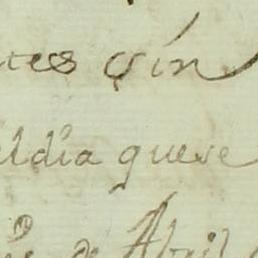 tes çin
eldia queve
de Abril